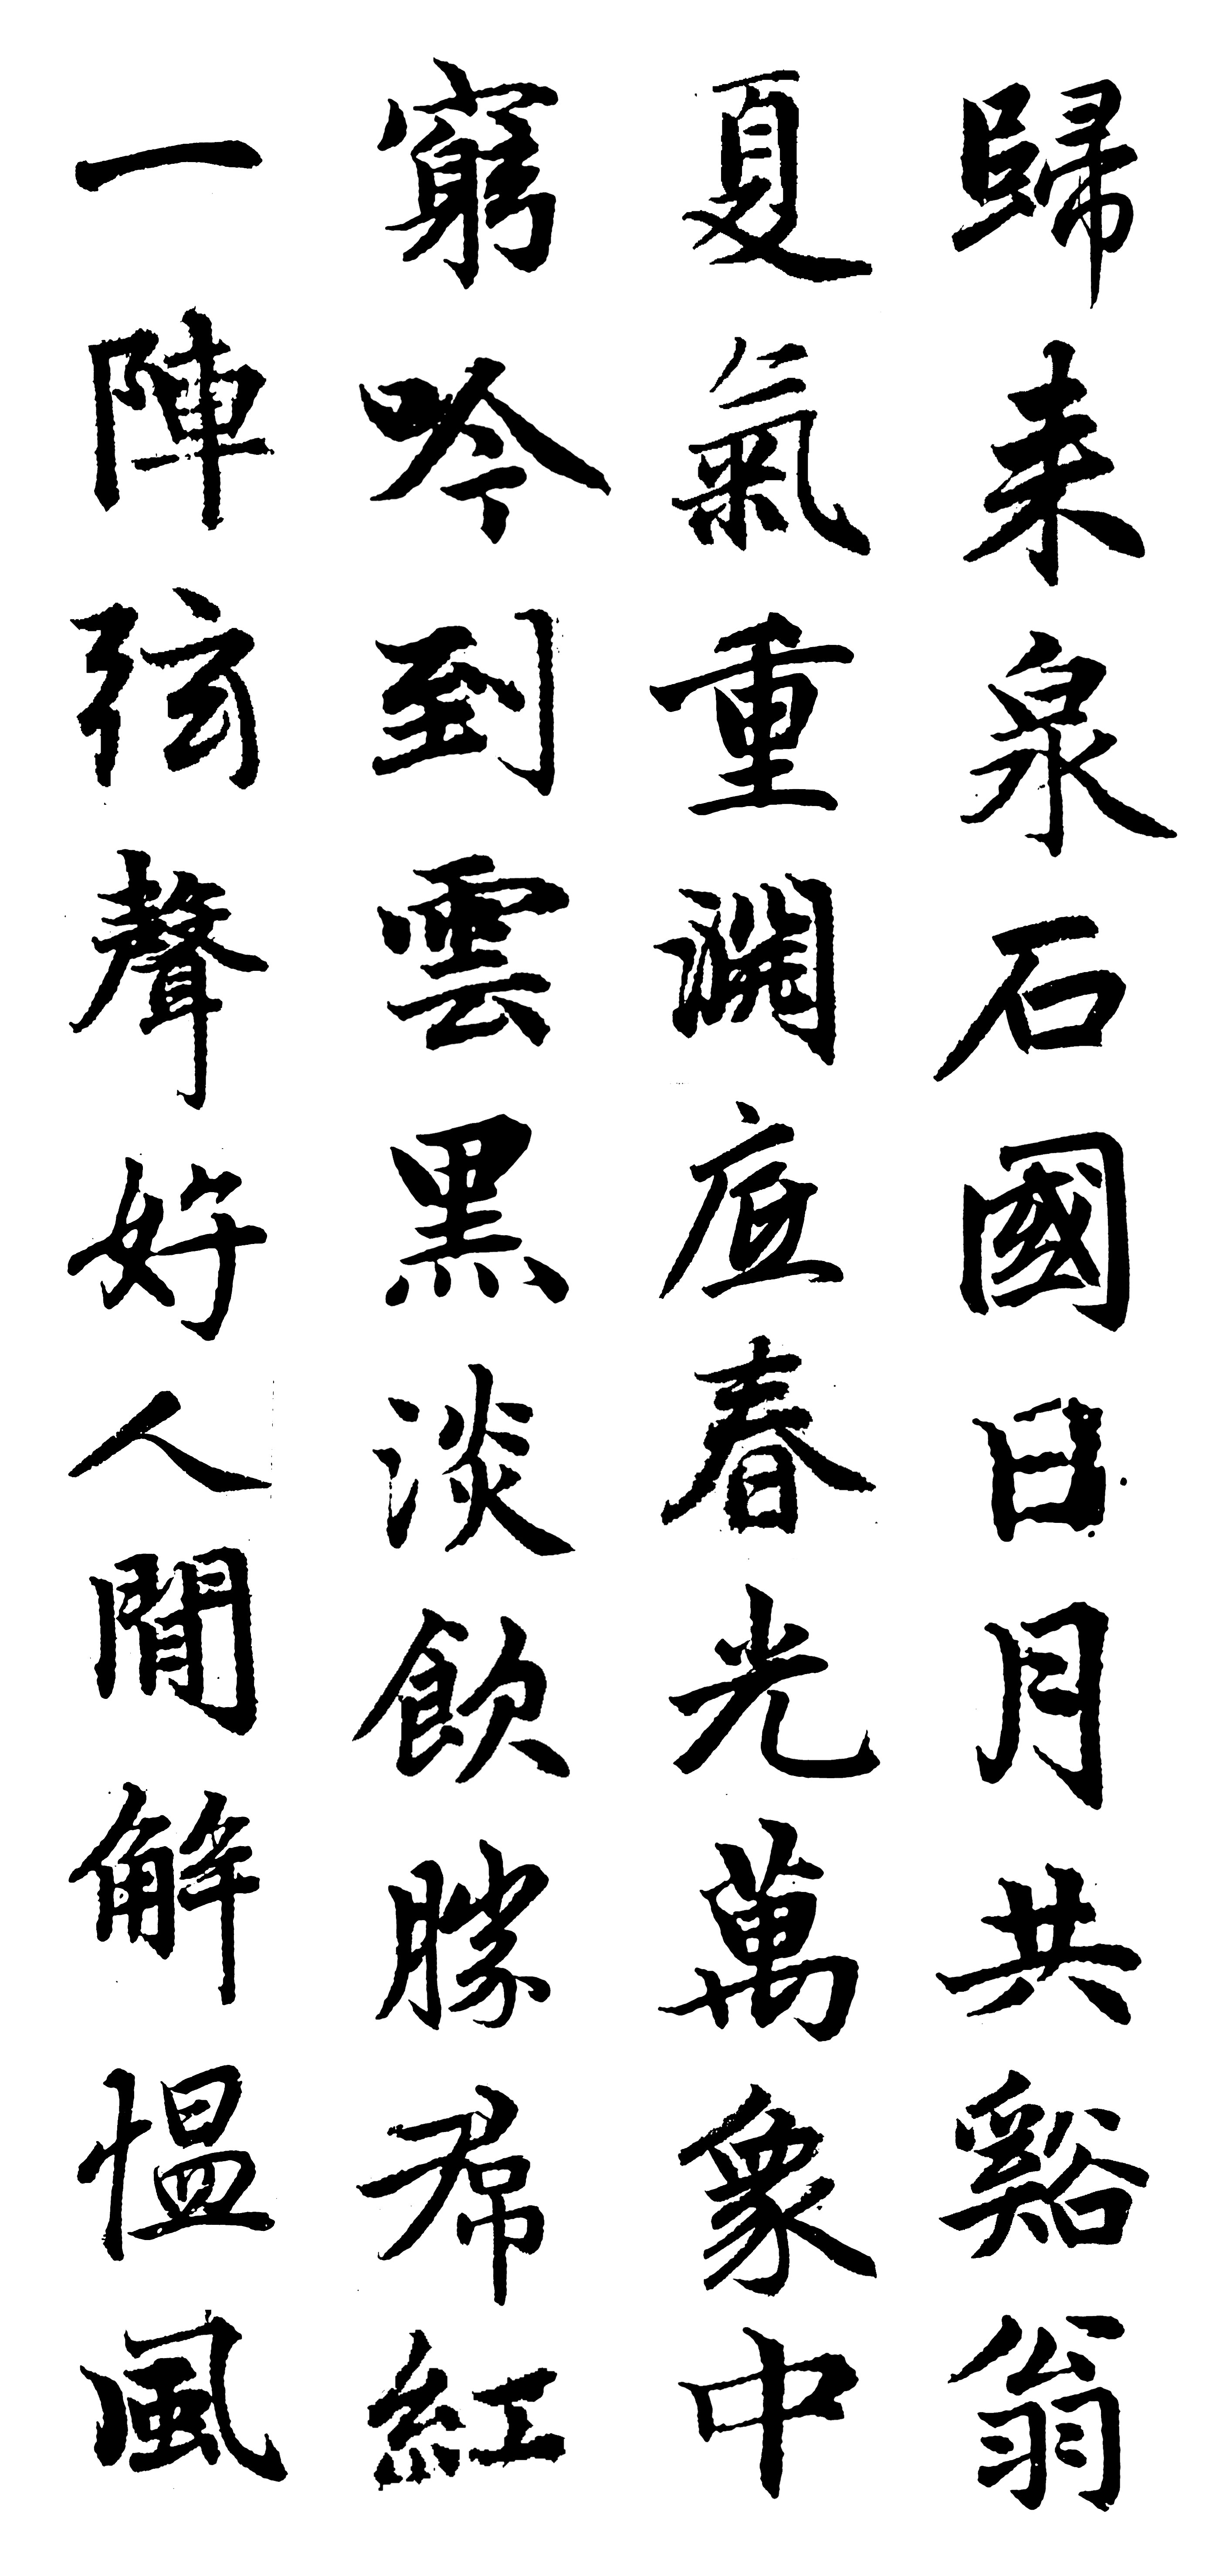 歸来泉石國日月共谿翁
夏氣重淵底春光萬象中
窮吟到雲黑淡飲勝帬紅
一陣弦聲好人間解慍風